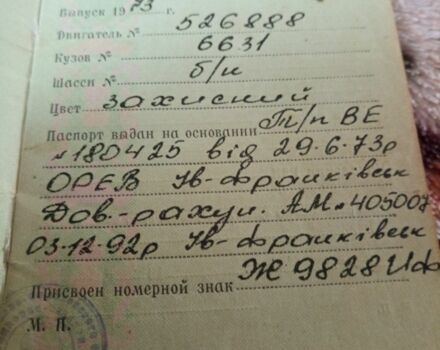 Выпуск 1973 г.
Двигатель № 526888
Кузов № 6631
Шасси № б/н
Цвет захисний
Паспорт выдан на основании Т/п ВЕ
№180425 від 29.6.73р
ОРЕВ Ів-Франківськ
Дов.-рахун. АМ№405007
03.12.92р Ів-Франківськ
Присвоен номерной знак Ж9828ИФ
М. П.